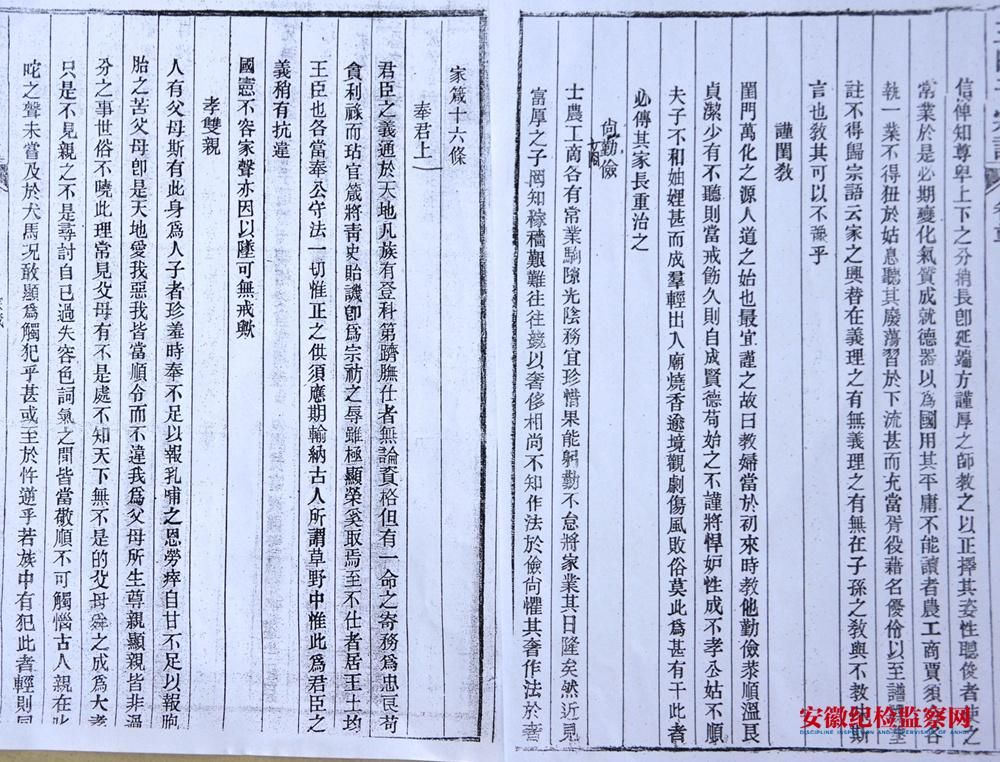 信俾知尊卑上下之分稍長卽延端方謹厚之師教之以正擇其姿性聰俊者使之
常業於是必期變化氣質成就德器以為國用其平庸不能讀者農工商賈須各
執一業不得狃於姑息聽其廢蕩習於下流甚而充當胥役藉名優伶以至譜
註不得歸宗語云家之興替在義理之有無義理之有無在子孫之教與不教
言也敎其可以不豫乎
謹閨敎
閨門萬化之源人道之始也最宜謹之故曰教婦當於初來時教他勤儉恭順溫良
貞潔少有不聽則當戒飭久則自成賢德苟始之不謹將悍妒性成不孝公姑不順
夫子不和妯娌甚而成羣輕出入廟燒香遊境觀劇傷風敗俗莫此為甚有干此者
必傳其家長重治之
尙勤儉
士農工商各有常業駒隙光陰務宜珍惜果能躬勤不怠將家業其日隆矣然近見
富厚之子罔知稼穡艱難往往競以奢侈相尚不知作法於儉尙懼其奢作法於奢
家箴十六條
奉君上
君臣之義通於天地凡族有登科第躋膴仕者無論資格但有一命之寄務爲忠良苟
貪利祿而玷官箴將靑史貽譏卽爲宗祊之辱雖極顯榮奚取焉至不仕者居王土均
王臣也各當奉公守法一切惟正之供須應期輸納古人所謂草野中惟此爲君臣之
義稍有抗違
國憲不容家聲亦因以墜可無戒歟
孝雙親
人有父母斯有此身爲人子者珍羞時奉不足以報孔哺之恩勞瘁自甘不足以報胞
胎之苦父母卽是天地愛我惡我皆當順令而不違我爲父母所生尊親顯親皆非溫
分之事世俗不曉此理常見父母有不是處不知天下無不是的父母舜之成爲大孝
只是不見親之不是尋討自己過失容色詞氣之間皆當敬順不可觸惱古人親在叱
咤之聲未嘗及於犬馬况敢顯爲觸犯乎甚或至於忤逆乎若族中有犯此者輕則
安徽纪检监察网
DISCIPLINE INSPECTION AND SUPERVISION OF ANHUI